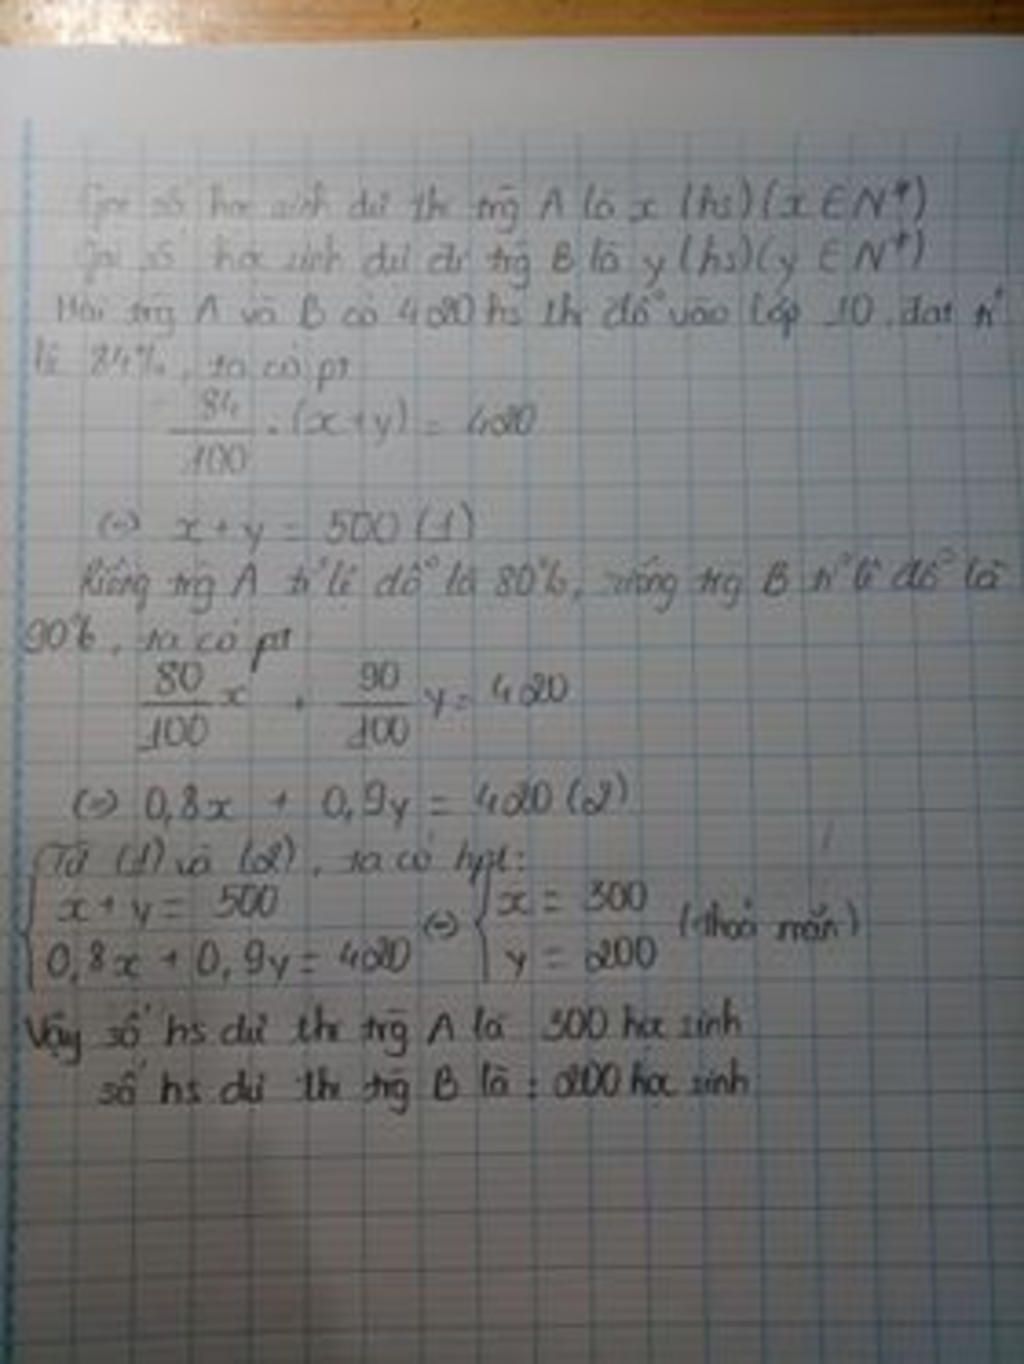 Gọi số học sinh dự thi trg A là x (hs) (x ∈ N*)
Gọi số học sinh dự thi trg B là y (hs) (y ∈ N*)
Hai trg A và B có 420 hs thi đỗ vào lớp 10, đạt tỉ
lệ 84%, ta có pt
84/100 . (x+y) = 420
(=) x + y = 500 (1)
Riêng trg A tỉ lệ đỗ là 80%, riêng trg B tỉ lệ đỗ là
90%, ta có pt
80/100 x + 90/100 y = 420
(=) 0,8x + 0,9y = 420 (2)
Từ (1) và (2), ta có hpt:
{ x + y = 500 (=) { x = 300 (thoả mãn)
{ 0,8x + 0,9y = 420 { y = 200
Vậy số hs dự thi trg A là 300 học sinh
số hs dự thi trg B là : 200 học sinh